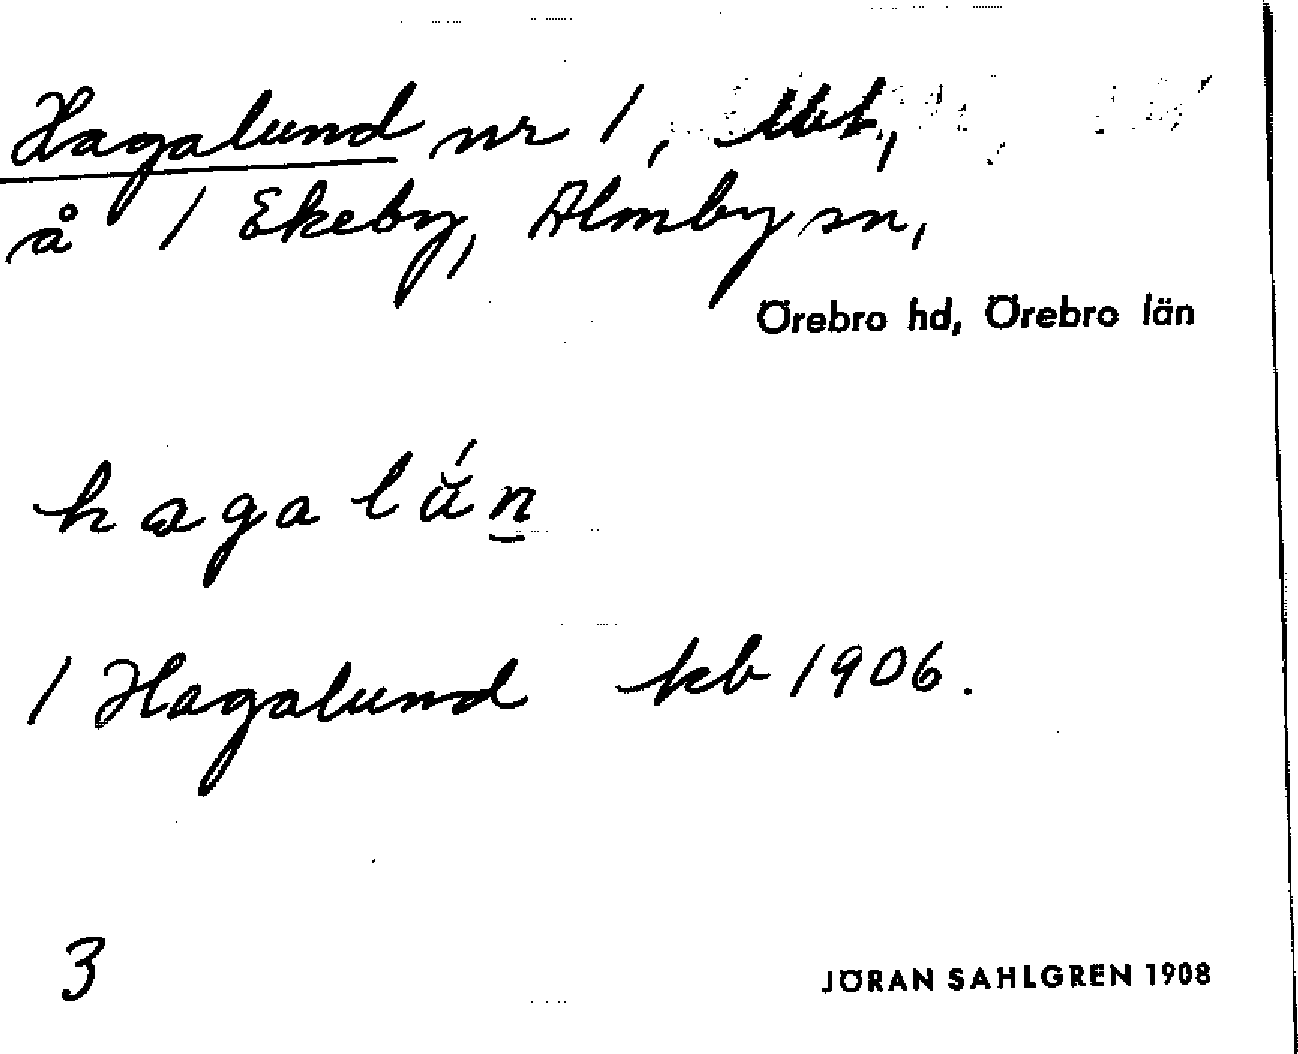 Hagalund nr 1, lht,
å 1 Ekeby, Almby sn,
Örebro hd, Örebro län
hagalŭ́n̲
1 Hagalund kb 1906.
3
JÖRAN SAHLGREN 1908